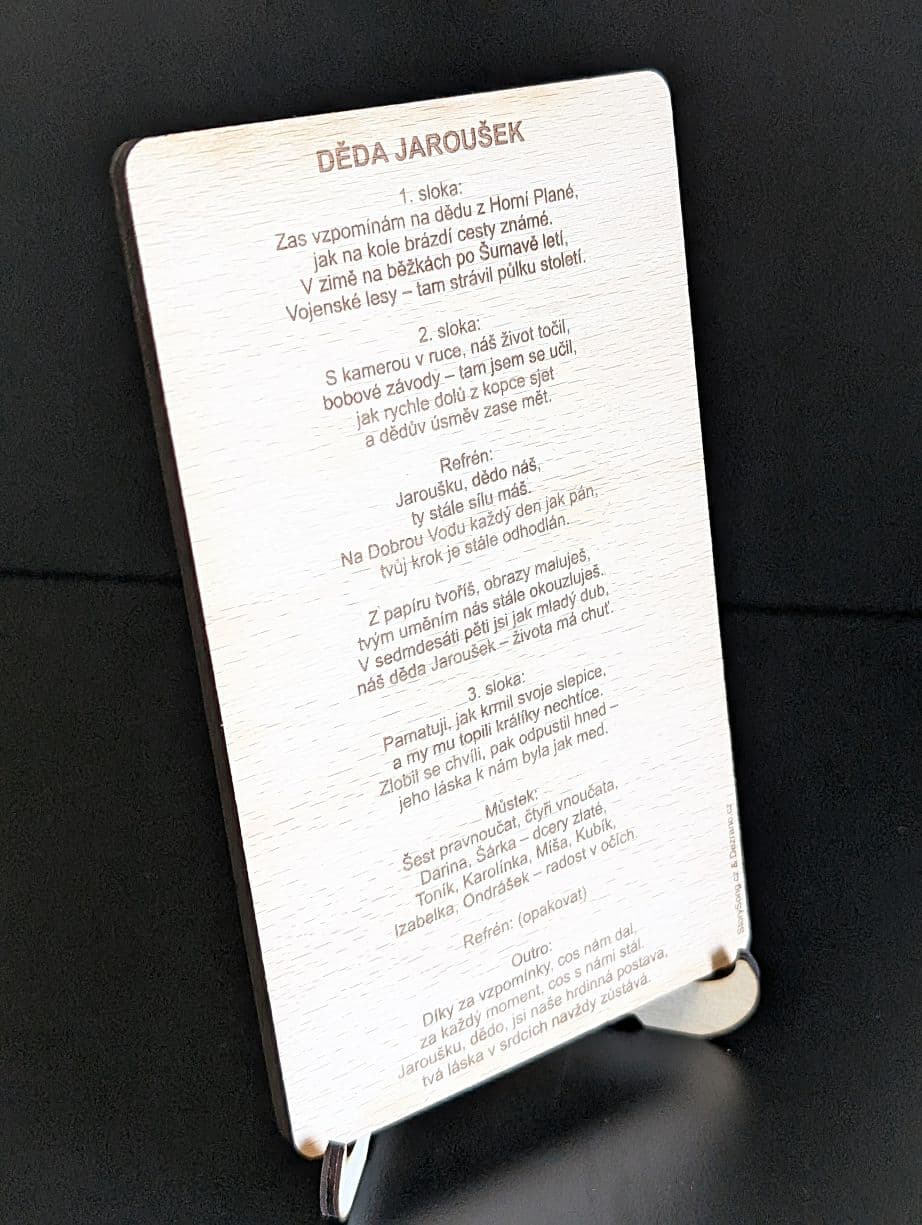 DĚDA JAROUŠEK
1. sloka:
Zas vzpomínám na dědu z Horní Plané,
jak na kole brázdí cesty známé.
V zimě na běžkách po Šumavě letí,
Vojenské lesy – tam strávil půlku století.
2. sloka:
S kamerou v ruce, náš život točil,
bobové závody – tam jsem se učil,
jak rychle dolů z kopce sjet
a dědův úsměv zase mět.
Refrén:
Jaroušku, dědo náš,
ty stále sílu máš.
Na Dobrou Vodu každý den jak pán,
tvůj krok je stále odhodlán.
Z papíru tvoříš, obrazy maluješ,
tvým uměním nás stále okouzluješ.
V sedmdesáti pěti jsi jak mladý dub,
náš děda Jaroušek – života má chuť.
3. sloka:
Pamatuji, jak krmil svoje slepice,
a my mu topili králíky nechtíce.
Zlobil se chvíli, pak odpustil hned –
jeho láska k nám byla jak med.
Můstek:
Šest pravnoučat, čtyři vnoučata,
Darina, Šárka – dcery zlaté,
Toník, Karolínka, Míša, Kubík,
Izabelka, Ondrášek – radost v očích.
Refrén: (opakovat)
Outro:
Díky za vzpomínky, cos nám dal,
za každý moment, cos s námi stál.
Jaroušku, dědo, jsi naše hrdinná postava,
tvá láska v srdcích navždy zůstává.
StorySong.cz & Dezrano.cz